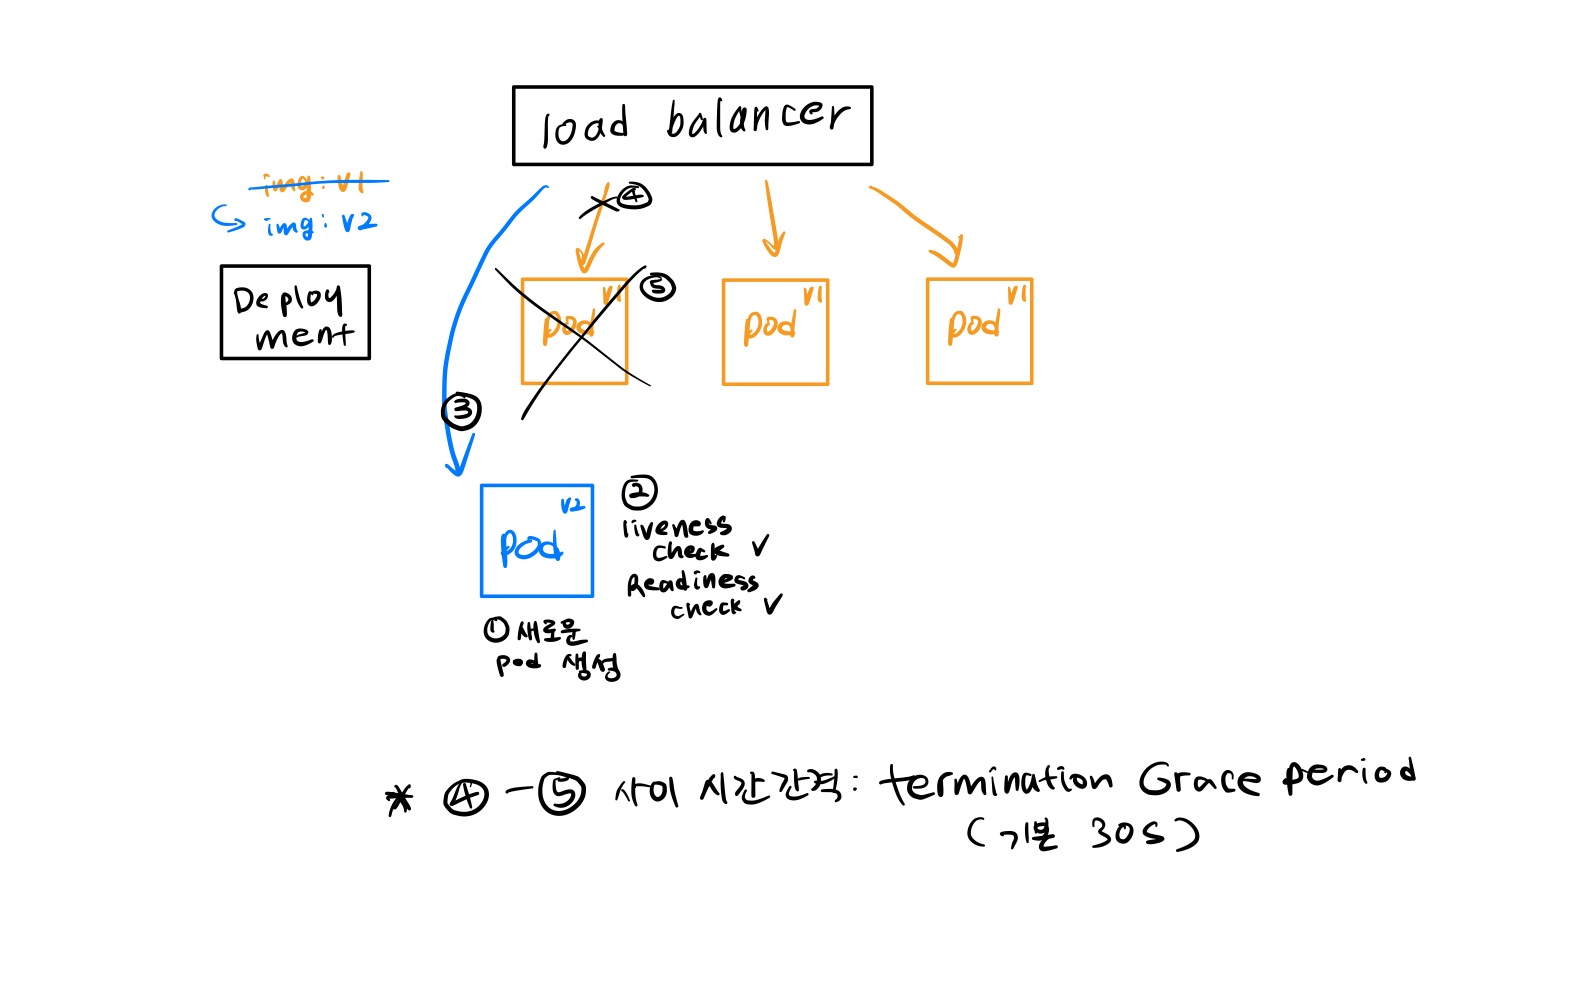 load balancer
img: v1
img: v2
Deploy
ment
④
v1
pod
⑤
v1
pod
v1
pod
③
v2
pod
②
liveness
check ✓
Readiness
check ✓
① 새로운
pod 생성
* ④ - ⑤ 사이 시간간격: termination Grace period
(기본 30s)